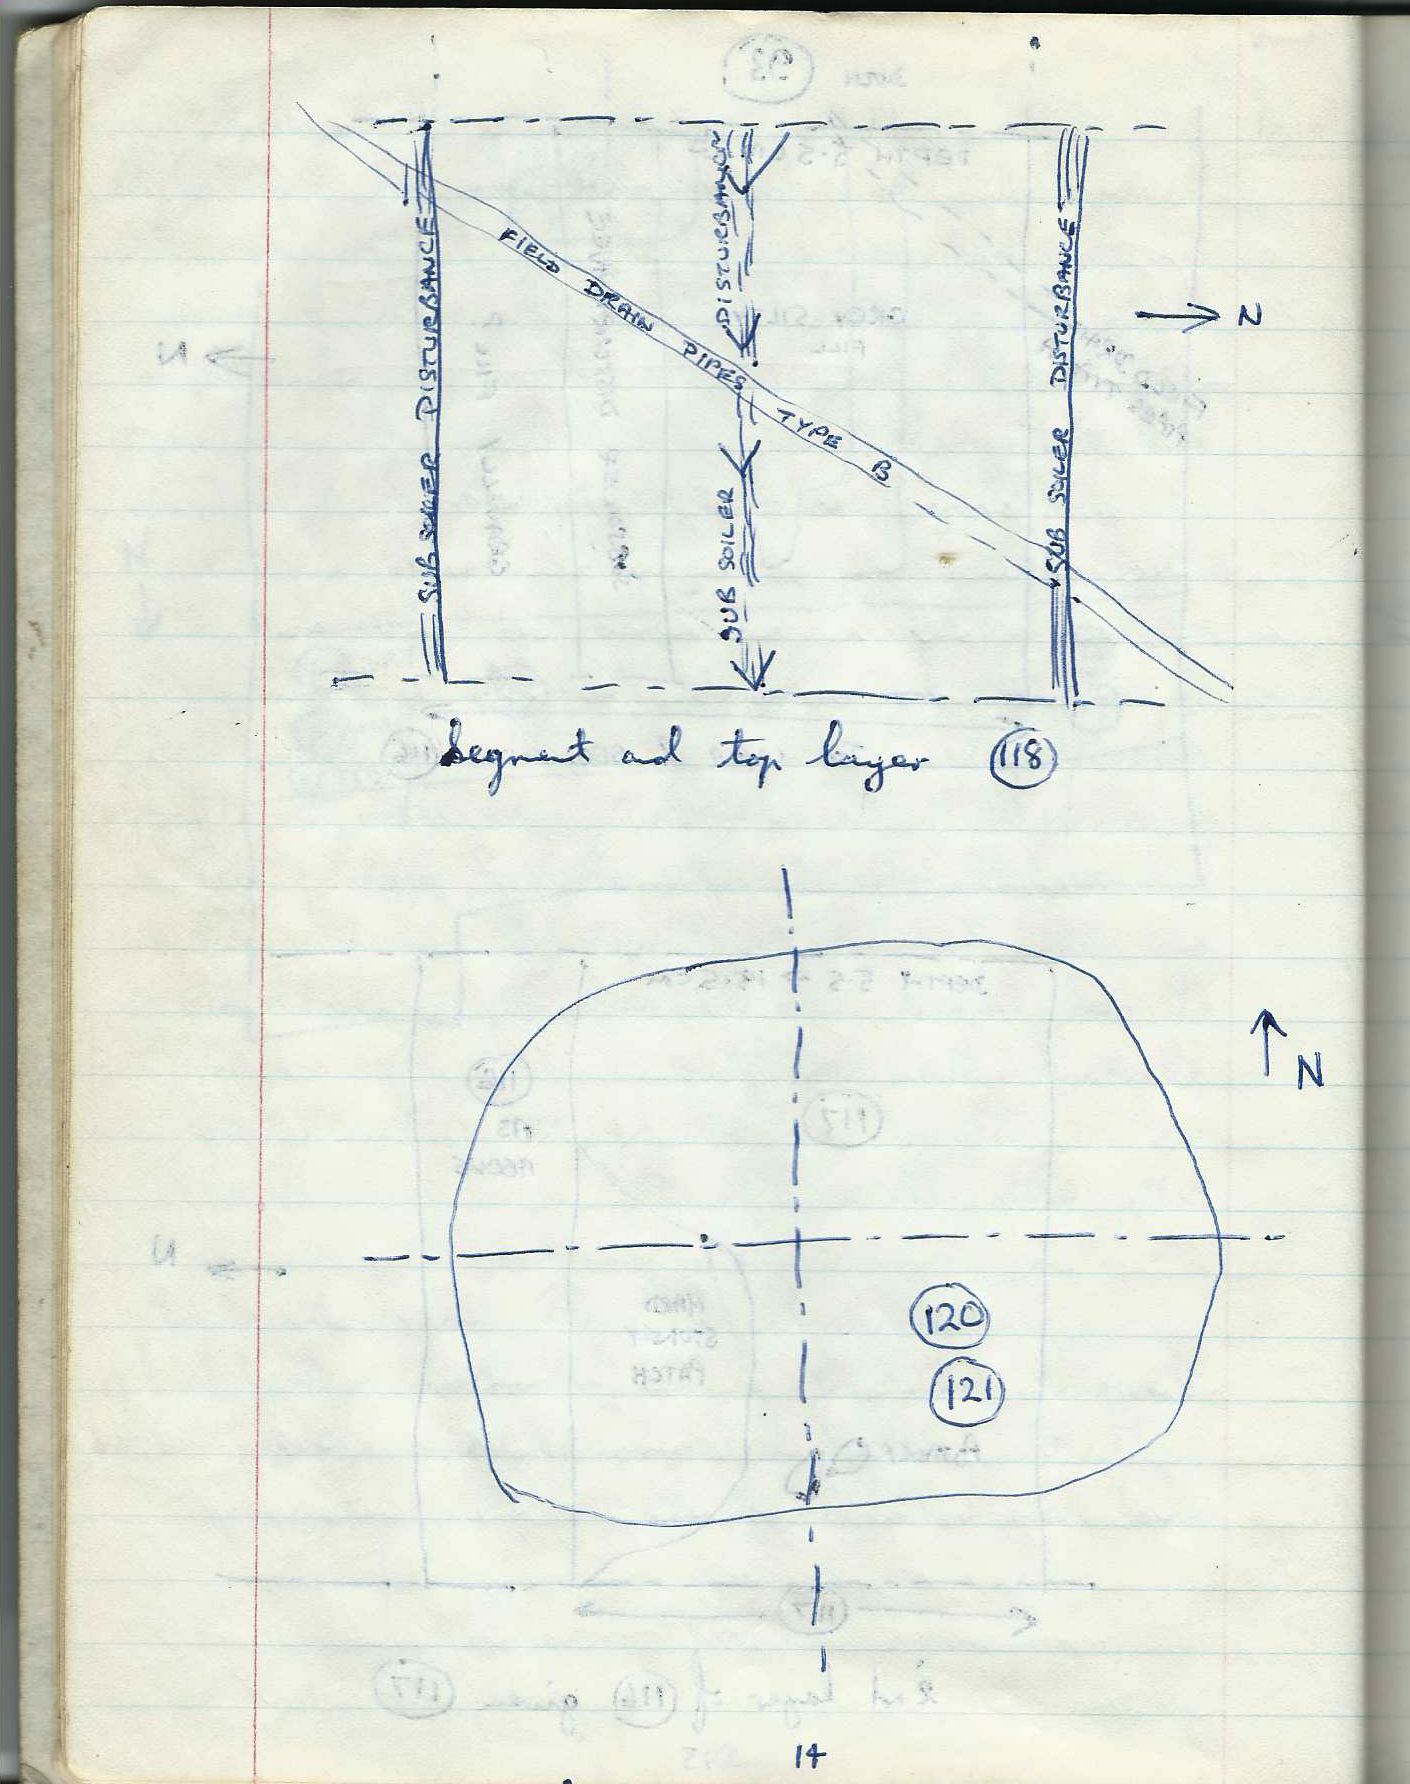 SUB SOILER DISTURBANCE
FIELD DRAIN PIPES TYPE B
SUB SOILER DISTURBANCE
SUB SOILER DISTURBANCE
N
Segment and top layer 118
N
120
121
14